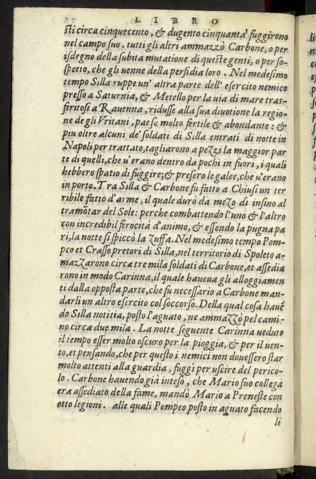 LIBRO
sti circa cinquecento, & dugento cinquanta fuggirono
nel campo suo. tutti gli altri ammazzò Carbone, o per
isdegno della subita mutatione di queste genti, o per so-
spetto, che gli uenne della perfidia loro. Nel medesimo
tempo Silla ruppe un' altra parte dell' esercito nemico
presso a Saturnia, & Metello per la uia di mare tras-
feritosi a Rauenna, ridusse alla sua diuotione la regione
de gli Vritani, paese molto fertile & abondante: &
piu oltre alcuni de' soldati di Silla entrati di notte in
Napoli per trattato, tagliarono a pezzi la maggior par
te di quelli, che u'erano dentro da pochi in fuori, i quali
hebbero spatio di fuggire; & presero le galee, che u'erano
in porto. Tra Silla & Carbone fu fatto a Chiusi un ter
ribile fatto d'arme, il quale durò da mezo dì insino al
tramōtar del Sole: perche combattendo l'uno & l'altro
con incredibil ferocità d'animo, & essendo la pugna pa
ri, la notte si spiccò la zuffa. Nel medesimo tempo Pom-
peo et Crasso pretori di Silla, nel territorio di Spoleto a-
mazzarono circa tre mila soldati di Carbone, et assedia
rono in modo Carinna, il quale haueua gli alloggiamen
ti dalla opposta parte, che fu necessario a Carbone man-
darli un altro esercito col soccorso. Della qual cosa hauē
do Silla notitia, posto l'aguato, ne ammazzò pel cami-
no circa due mila. La notte seguente Carinna ueduto
il tempo esser molto oscuro per la pioggia, & per il uen-
to, et pensando, che per questo i nemici non douessero star
molto attenti alla guardia, fuggì per uscire del perico-
lo. Carbone hauendo già inteso, che Mario suo collega
era assediato della fame, mandò Mario a Preneste con
otto legioni. alle quali Pompeo posto in aguato facendo
li